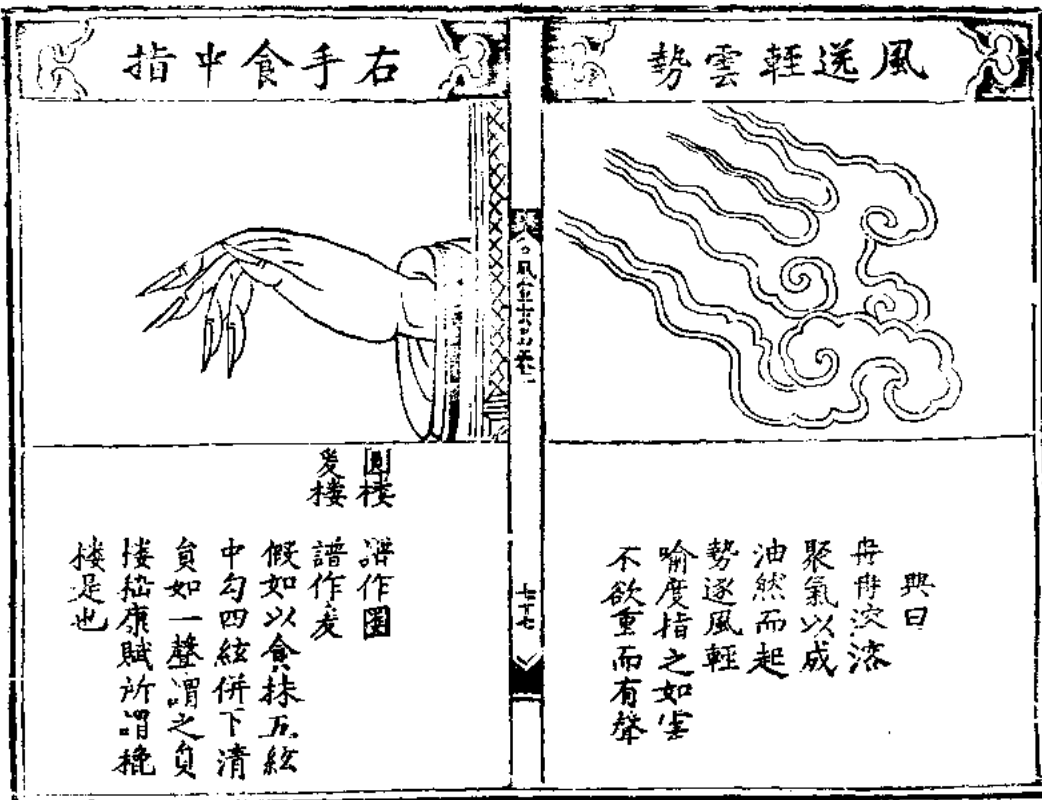 風送輕雲勢
興曰
冉冉溶
聚氣以成
油然而起
勢逐風輕
喻度指之如雲
不欲重而有聲
七十七
右手食中指
圓摟 譜作
摟 譜作
假如以食抹五絃
中勾四絃併下清
貟如一聲謂之貟
摟嵇康賦所謂
摟是也